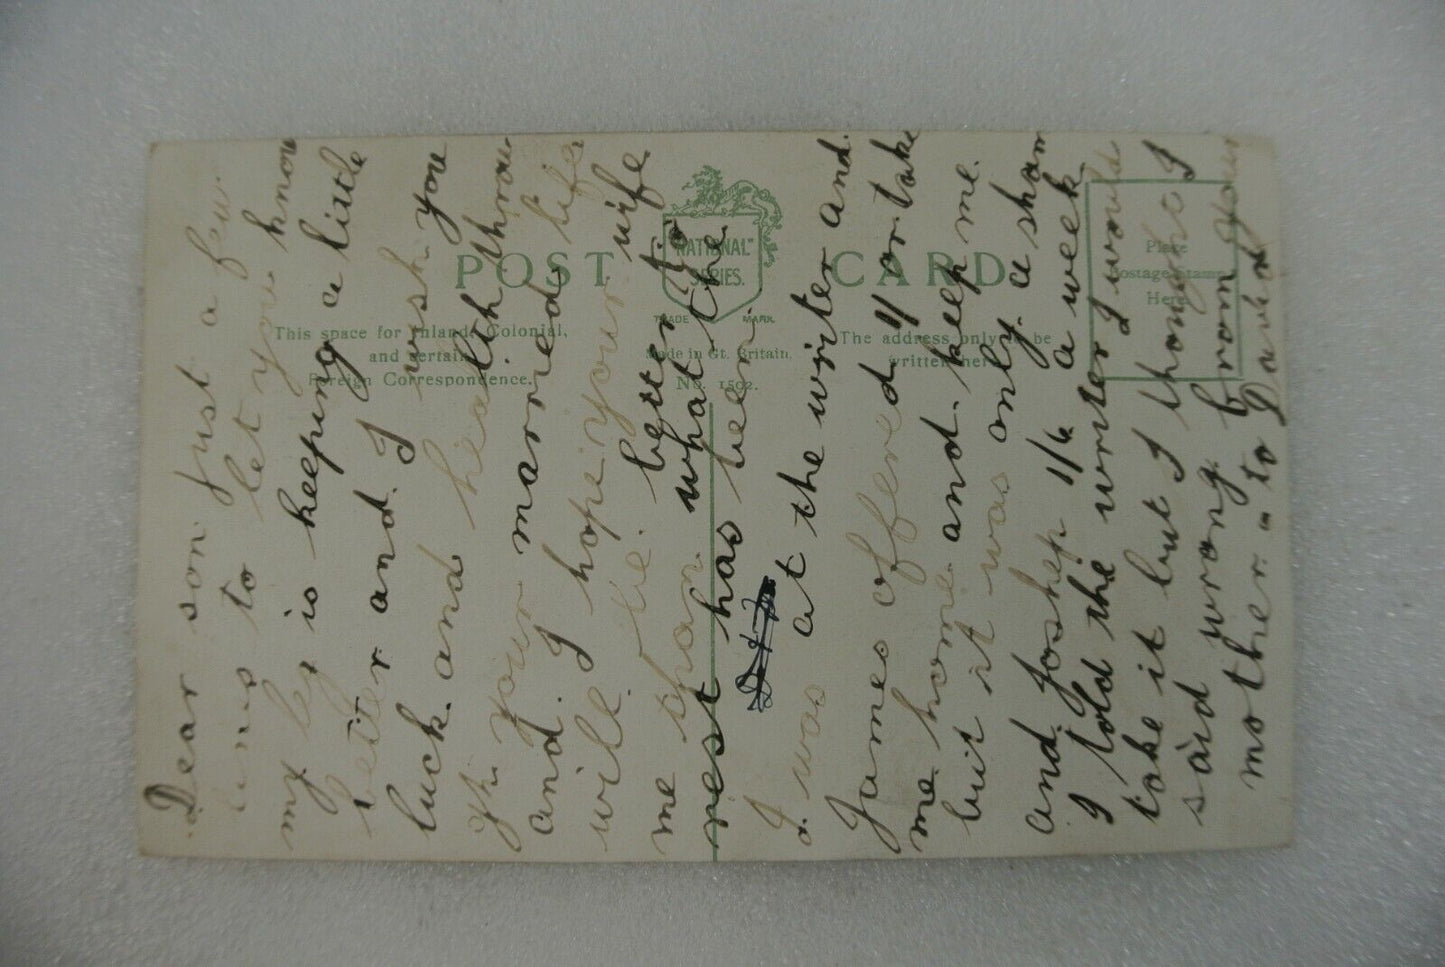 POST CARD
"NATIONAL"
SERIES.
TRADE MARK
This space for Inland, Colonial,
and certain
Foreign Correspondence.
Made in Gt. Britain.
No. 1592.
The address only to be
written here
Place
Postage Stamp
Here
Dear son Just a few
lins to let you know
my leg is keeping a little
better and. I wish you
luck. and health throu
gh your married life
and. I hope your wife
will. be. better to
me than what the
rest has been.
I was at the writer and.
James offered 11/ or take
me home and. keep me.
but it was only. a sham
and. Joshep 1/6 a week.
I told the writer I would
take it but I thought I
said wrong. from your
mother = to David